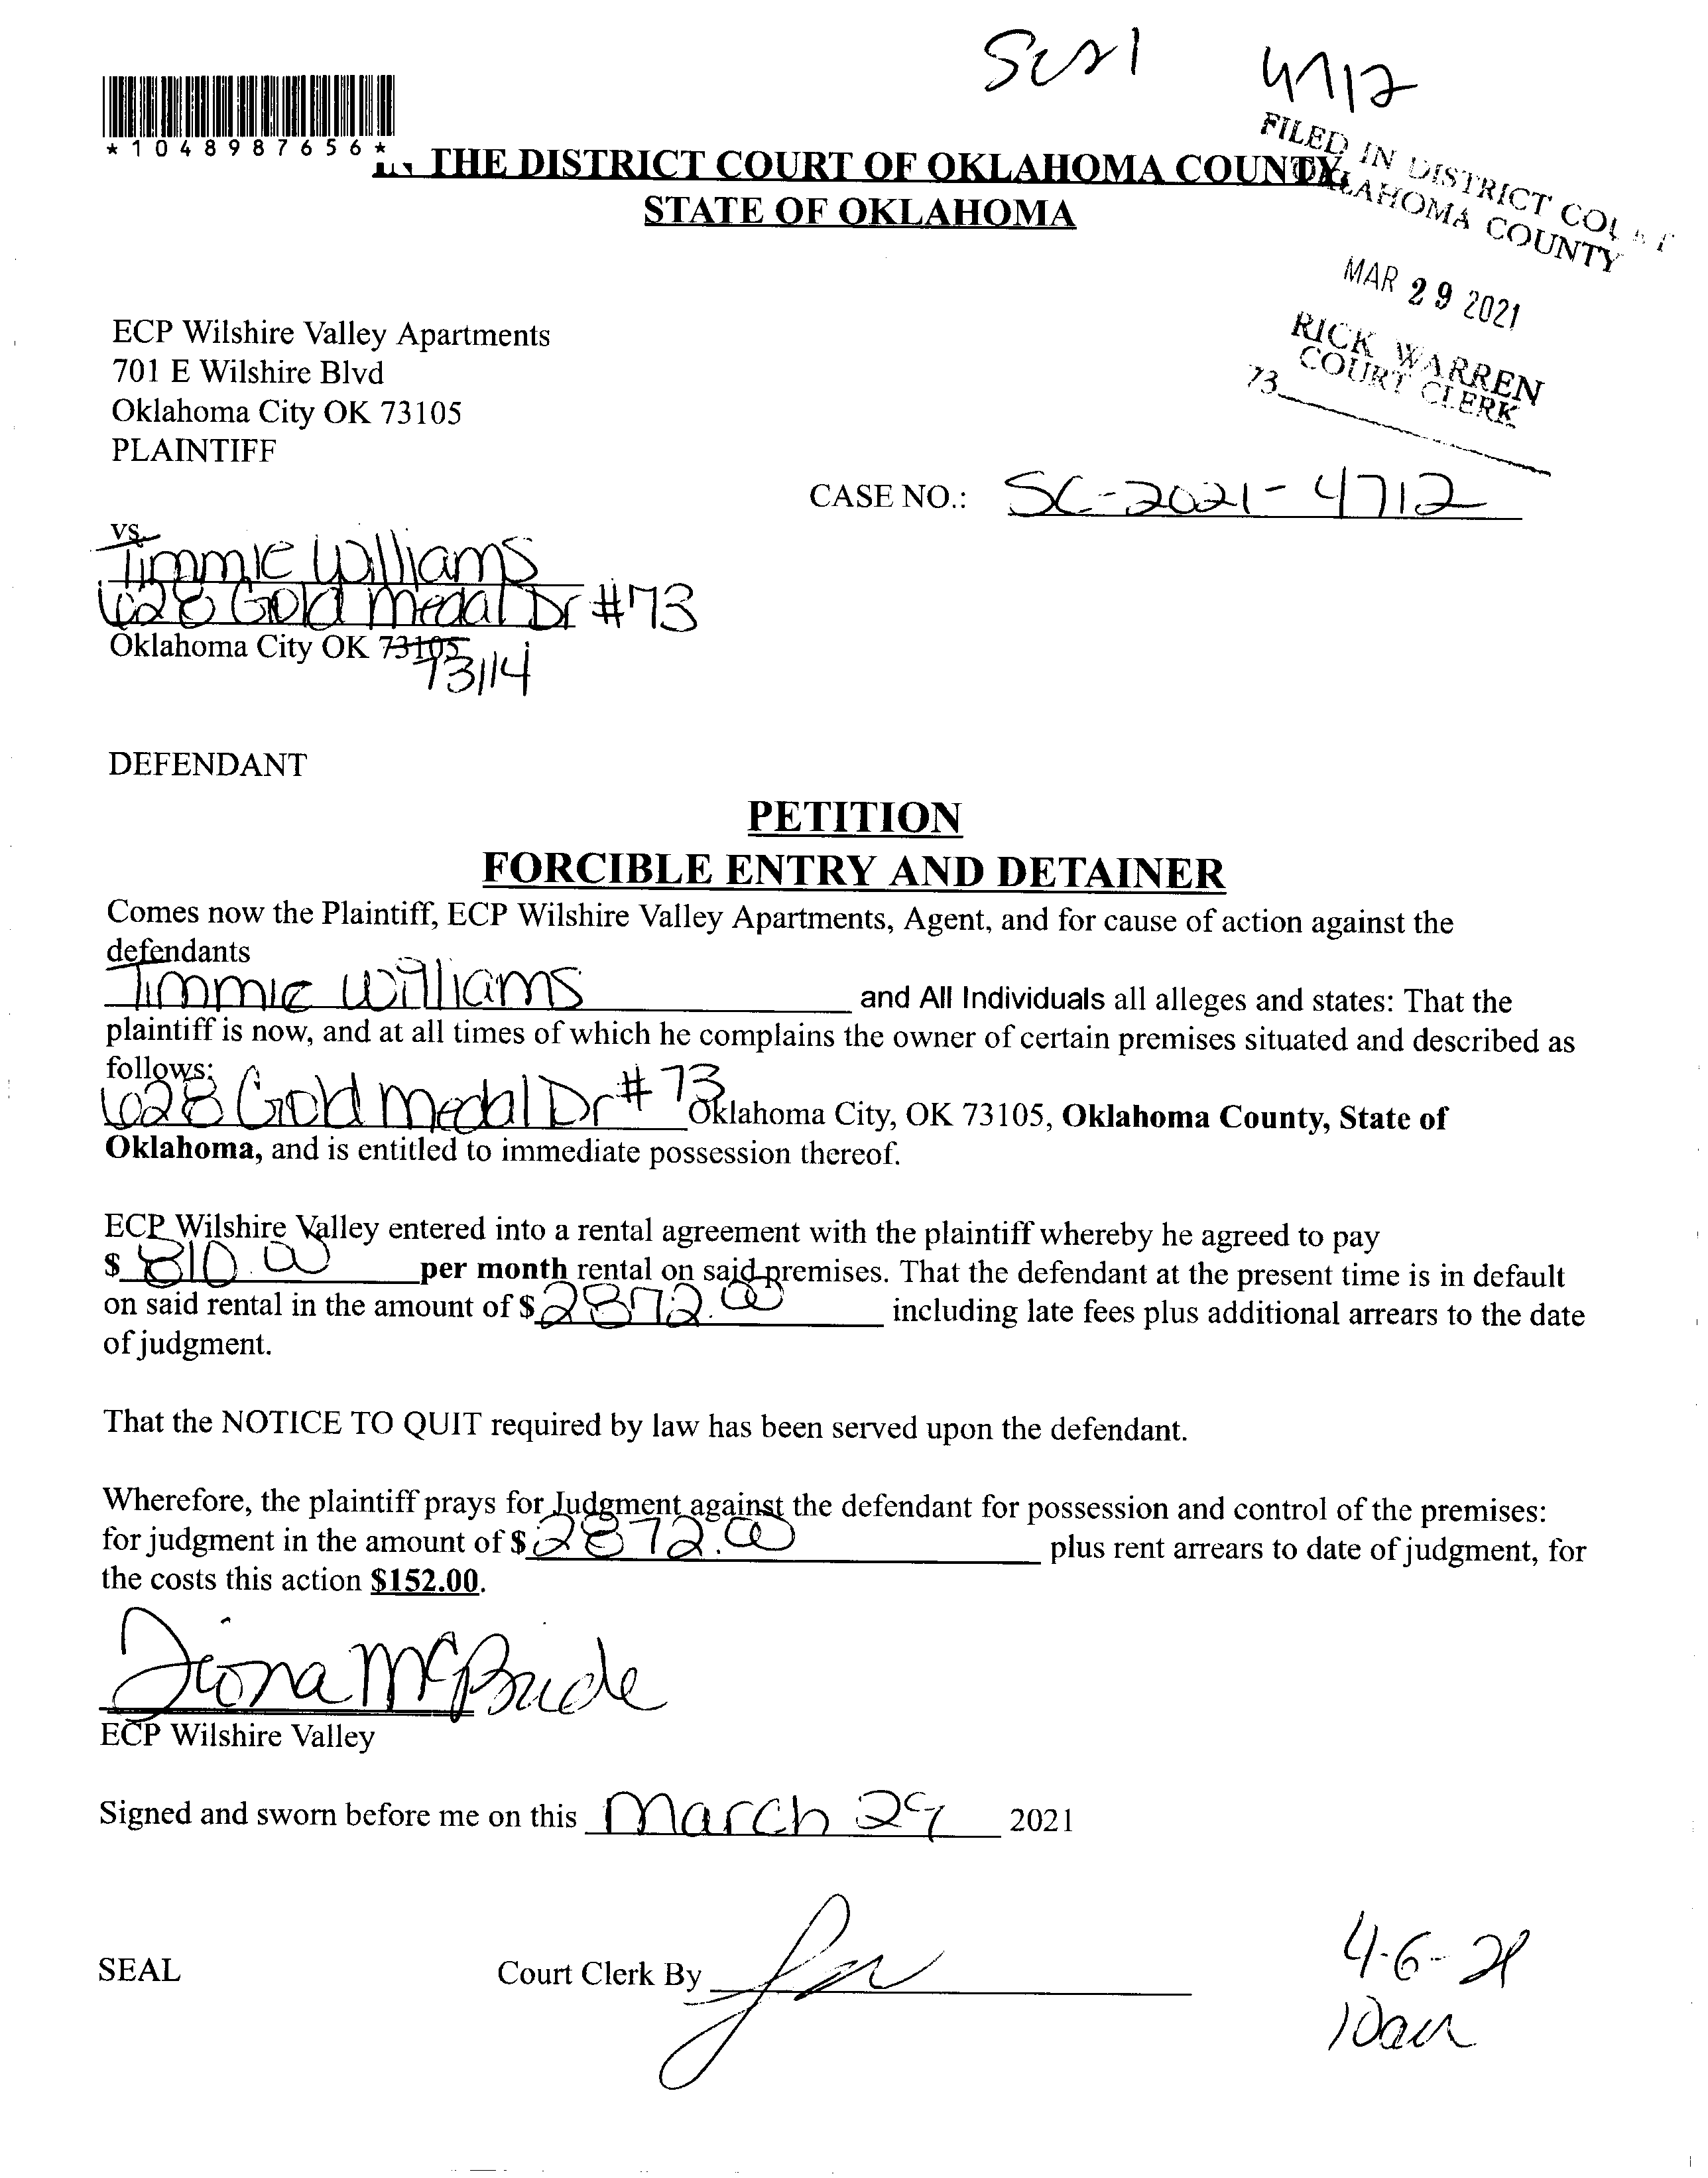 SC21 4712
*1048987656*
THE DISTRICT COURT OF OKLAHOMA COUNTY,
STATE OF OKLAHOMA
FILED IN DISTRICT COURT
OKLAHOMA COUNTY
MAR 29 2021
RICK WARREN
COURT CLERK
73
ECP Wilshire Valley Apartments
701 E Wilshire Blvd
Oklahoma City OK 73105
PLAINTIFF
CASE NO.: SC-2021-4712
vs.
Timmie Williams
628 Gold Medal Dr #73
Oklahoma City OK 73105
73114
DEFENDANT
PETITION
FORCIBLE ENTRY AND DETAINER
Comes now the Plaintiff, ECP Wilshire Valley Apartments, Agent, and for cause of action against the
defendants
Timmie Williams and All Individuals all alleges and states: That the
plaintiff is now, and at all times of which he complains the owner of certain premises situated and described as
follows:
628 Gold Medal Dr # 73 Oklahoma City, OK 73105, Oklahoma County, State of
Oklahoma, and is entitled to immediate possession thereof.
ECP Wilshire Valley entered into a rental agreement with the plaintiff whereby he agreed to pay
$ 810.00 per month rental on said premises. That the defendant at the present time is in default
on said rental in the amount of $ 2872.00 including late fees plus additional arrears to the date
of judgment.
That the NOTICE TO QUIT required by law has been served upon the defendant.
Wherefore, the plaintiff prays for Judgment against the defendant for possession and control of the premises:
for judgment in the amount of $ 2872.00 plus rent arrears to date of judgment, for
the costs this action $152.00.
McBride
ECP Wilshire Valley
Signed and sworn before me on this March 29 2021
SEAL
Court Clerk By
4-6-21
10am